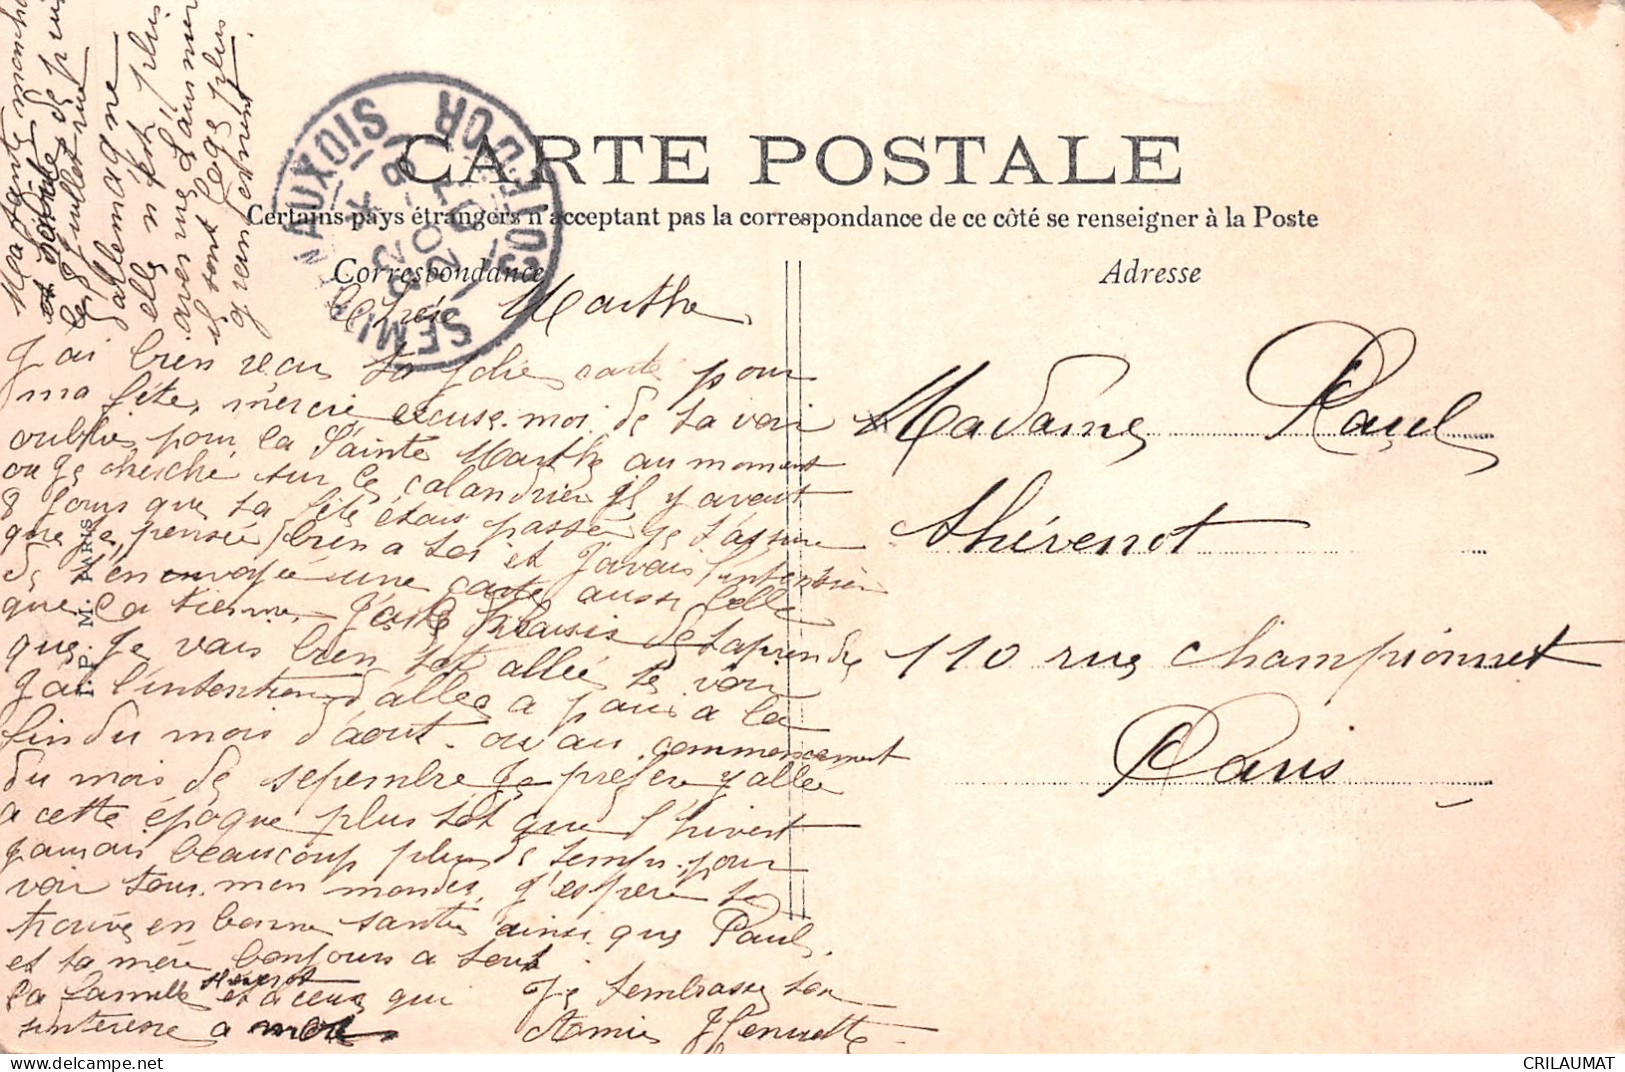 CARTE POSTALE
Certains pays étrangers n'acceptant pas la correspondance de ce côté se renseigner à la Poste
Correspondance
Adresse
SEMUR-EN-AUXOIS
COTE-D'OR
I. P. M. PARIS
Marthe
J'ai bien recu ta jolie carte pour
ma fête, mercie excuse moi de tavoir
oublie pour la Sainte Marthe au moment
ou Je cherche sur le calandrier il y avait
8 Jours que ta fête étais passée je t'assure
que Je pensée bien a toi et J'avais l'intention
de t'envoyée une carte aussi belle
que la tienne, J'ai le plaisir de tapprendre
que Je vais bientot allée te voir
J'ai l'intention d'allee a paris a la
fin du mois d'aout. ou au commencement
du mois de sepembre Je prefere y allée
a cette époque plus tot que l'hivert
Jaurais beaucoup plus de temps pour
voir tous mon monde, J'espere te
trouve en bonne santée ainsi que Paul,
et ta mère bonjours a tout
la famille thevenot et a ceux qui
sinteresse a moi
Je tembrasse ton
Amie Henriette
il sont
Madame Paul
thévenot
110 rue championnet
Paris
CRILAUMAT